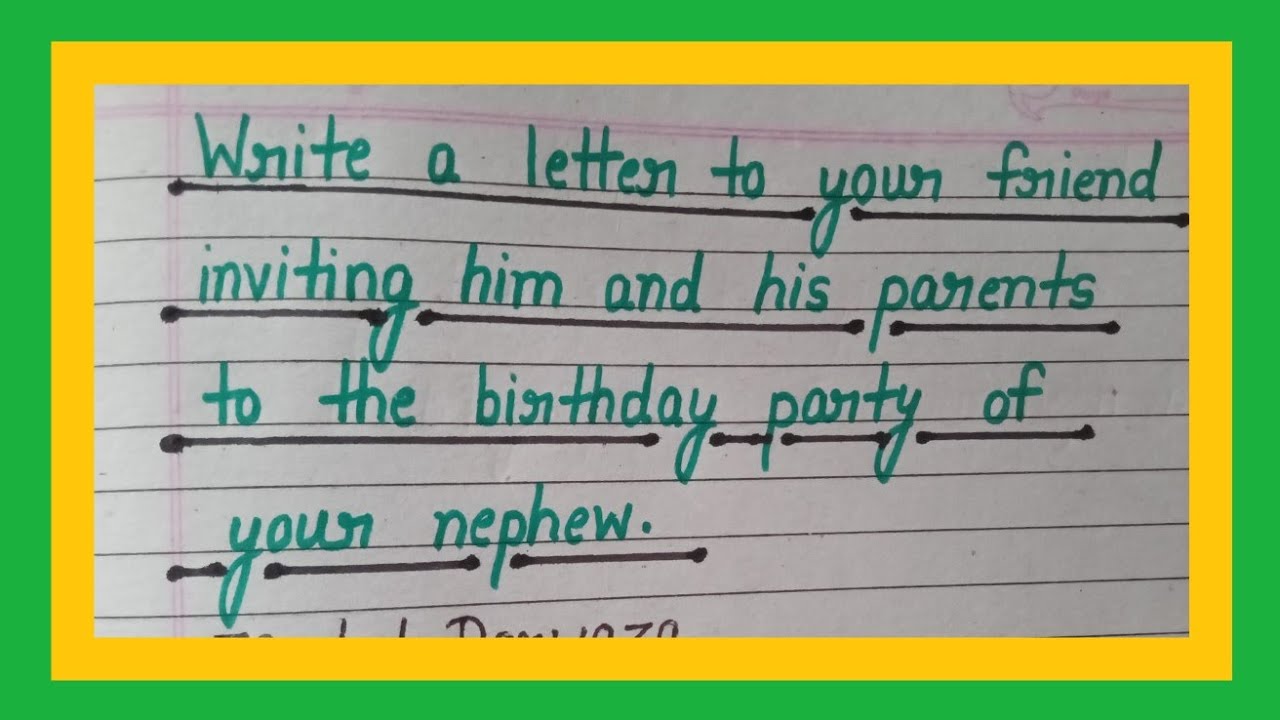 Write a letter to your friend
inviting him and his parents
to the birthday party of
your nephew.